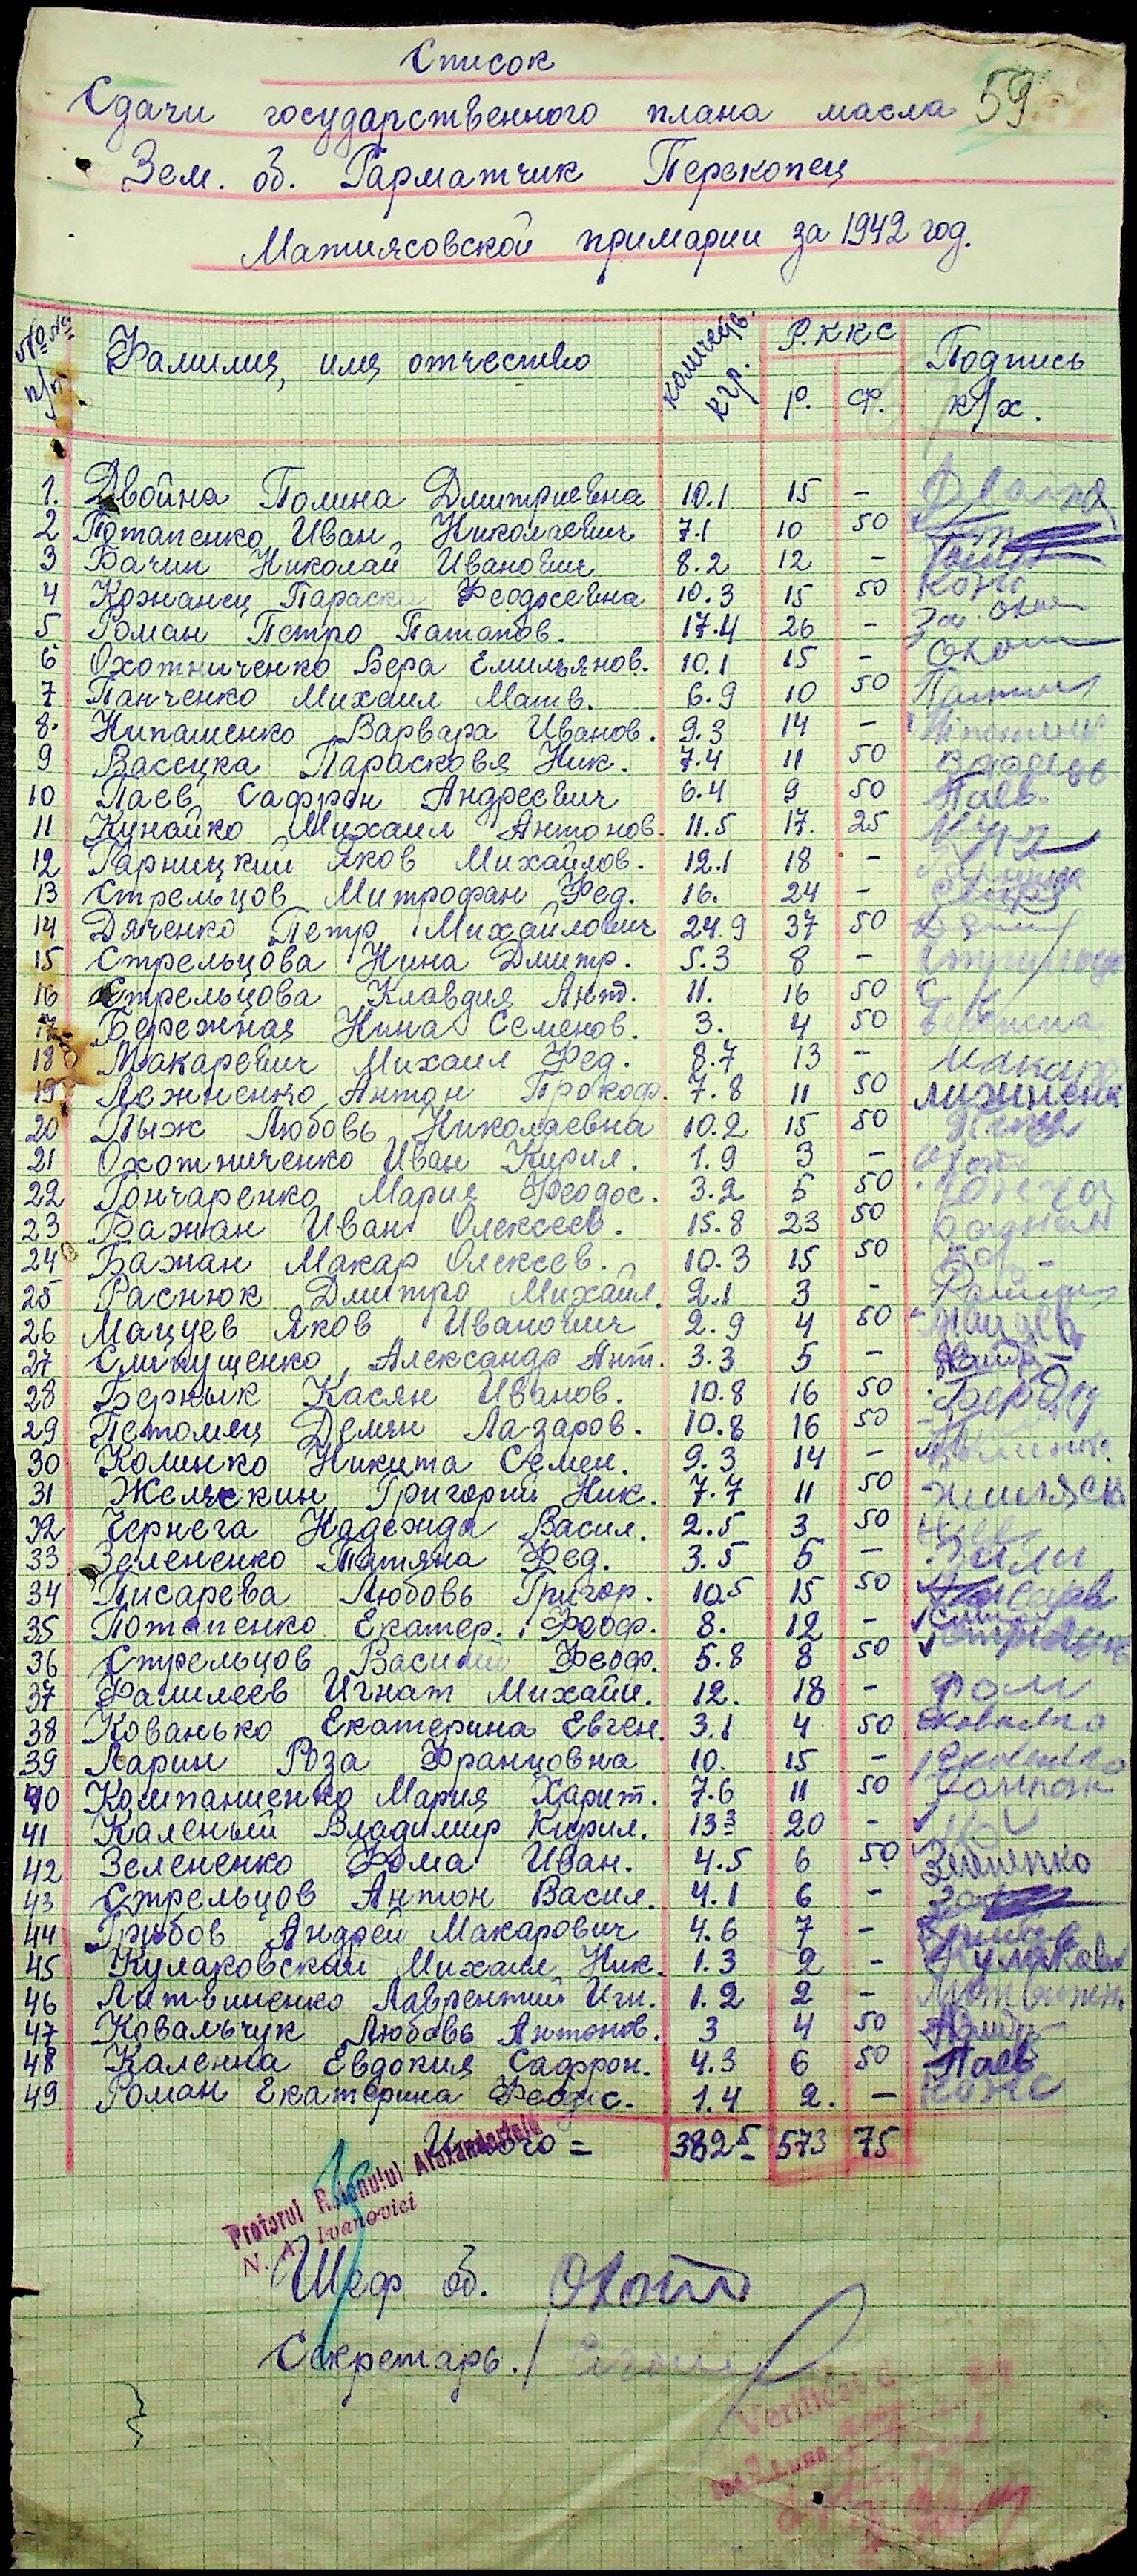 Список
59
Сдачи государственного плана масла
Зем. об. Гарматчик Перекопец
Матиясовской примарии за 1942 год.
№№ п/п Фамилия, имя отчество количеств. кгр. Р.ККС Подпись
р. ф. к/х.
1. Двойна Полина Дмитриевна 10.1 15 –
2 Потапенко Иван Николаевич 7.1 10 50
3 Бачин Николай Иванович 8.2 12 –
4 Кожанец Параска Феодосевна 10.3 15 50 Кож
5 Роман Петро Патапов. 17.4 26 –
6 Охотниченко Вера Емильянов. 10.1 15 – Охот
7 Панченко Михаил Матв. 6.9 10 50
8. Нипашенко Варвара Иванов. 9.3 14 –
9 Васецка Парасковя Ник. 7.4 11 50
10 Паев Сафрон Андреевич 6.4 9 50 Паев.
11 Кунайко Михаил Антонов. 11.5 17. 25 Кун
12 Гарницкий Яков Михайлов. 12.1 18 –
13 Стрельцов Митрофан Фед. 16. 24 –
14 Дяченко Петр Михайлович 24.9 37 50
15 Стрельцова Нина Дмитр. 5.3 8 –
16 Стрельцова Клавдия Ант. 11. 16 50
17 Бережная Нина Семенов. 3. 4 50
18 Макаревич Михаил Фед. 8.7 13 – Макар
19 Лежненко Антон Прокоф. 7.8 11 50 Лижненк
20 Пыж Любовь Николаевна 10.2 15 50
21 Охотниченко Иван Кирил. 1.9 3 – Охот
22 Гончаренко Мария Феодос. 3.2 5 50
23 Бажан Иван Олексеев. 15.8 23 50 Бажнан
24 Бажан Макар Олексев. 10.3 15 50
25 Раснюк Дмитро Михайл. 2.1 3 –
26 Мацуев Яков Иванович 2.9 4 50 Мацуев
27 Слипущенко Александр Ант. 3.3 5 –
28 Бернык Касян Иванов. 10.8 16 50
29 Петомец Демян Лазаров. 10.8 16 50
30 Колинко Никита Семен. 9.3 14 –
31 Желяскин Григорий Ник. 7.7 11 50
32 Чернега Надежда Васил. 2.5 3 50
33 Зелененко Татяна Фед. 3.5 5 –
34 Писарева Любовь Григор. 10.5 15 50 Писарев
35 Потапенко Екатер. Феоф. 8. 12 –
36 Стрельцов Василий Феоф. 5.8 8 50
37 Фамилеев Игнат Михайл. 12. 18 – Фам
38 Кованько Екатерина Евген. 3.1 4 50 Кованко
39 Ларин Роза Францовна 10. 15 –
40 Компаниенко Мария Харит. 7.6 11 50
41 Каленый Владимир Кирил. 13 3 20 –
42 Зелененко Фома Иван. 4.5 6 50 Зеленепко
43 Стрельцов Антон Васил. 4.1 6 –
44 Грибов Андрей Макарович 4.6 7 –
45 Кулаковский Михаил Ник. 1.3 2 – Кулаков
46 Литвиненко Лаврентий Игн. 1.2 2 –
47 Ковальчук Любовь Антонов. 3 4 50
48 Каленна Евдокия Сафрон. 4.3 6 50 Паев
49 Роман Екатерина Феодис. 1.4 2. – Кожс
Итого = 382 5 573 75
Pretorul Raionului Alexanderfeld
N. A. Ivanovici
Шеф об. Охотн
Секретарь.
Verificat